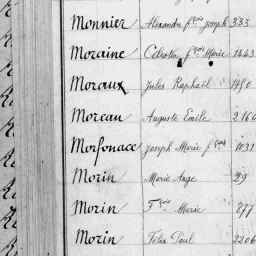 Monnier Alexandre f.çois Joseph 333
Moraine Célestin f.çois Marie 1443
Moraux Jules Raphaël 1450
Moreau Auguste Emile 2164
Morfonace Joseph Marie f.çois 1031
Morin Marie Ange 29
Morin F.çois Marie 877
Morin Félix Paul 2206